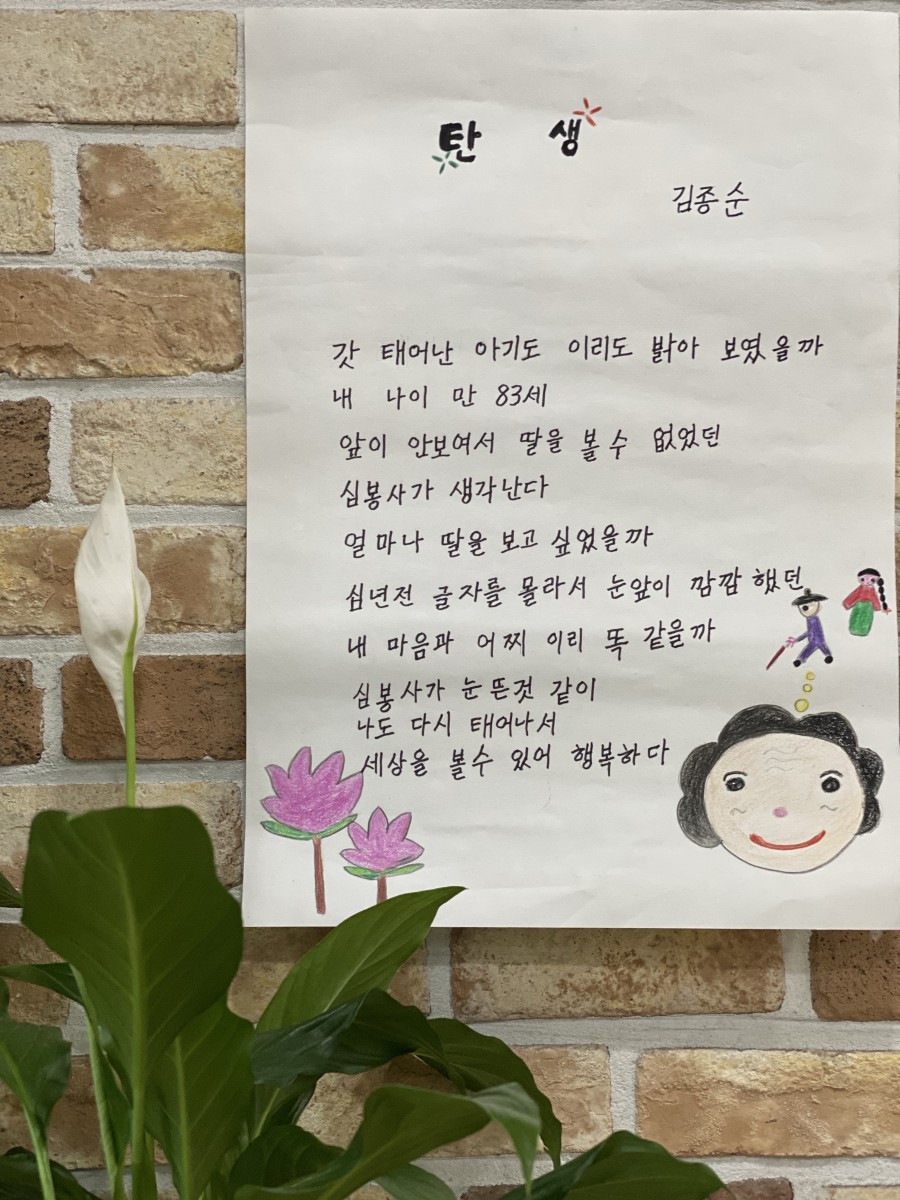 탄 생
김종순
갓 태어난 아기도 이리도 밝아 보였을까
내 나이 만 83세
앞이 안보여서 딸을 볼 수 없었던
심봉사가 생각난다
얼마나 딸을 보고 싶었을까
십년전 글자를 몰라서 눈앞이 깜깜했던
내 마음과 어찌 이리 똑 같을까
심봉사가 눈 뜬것 같이
나도 다시 태어나서
세상을 볼수 있어 행복하다